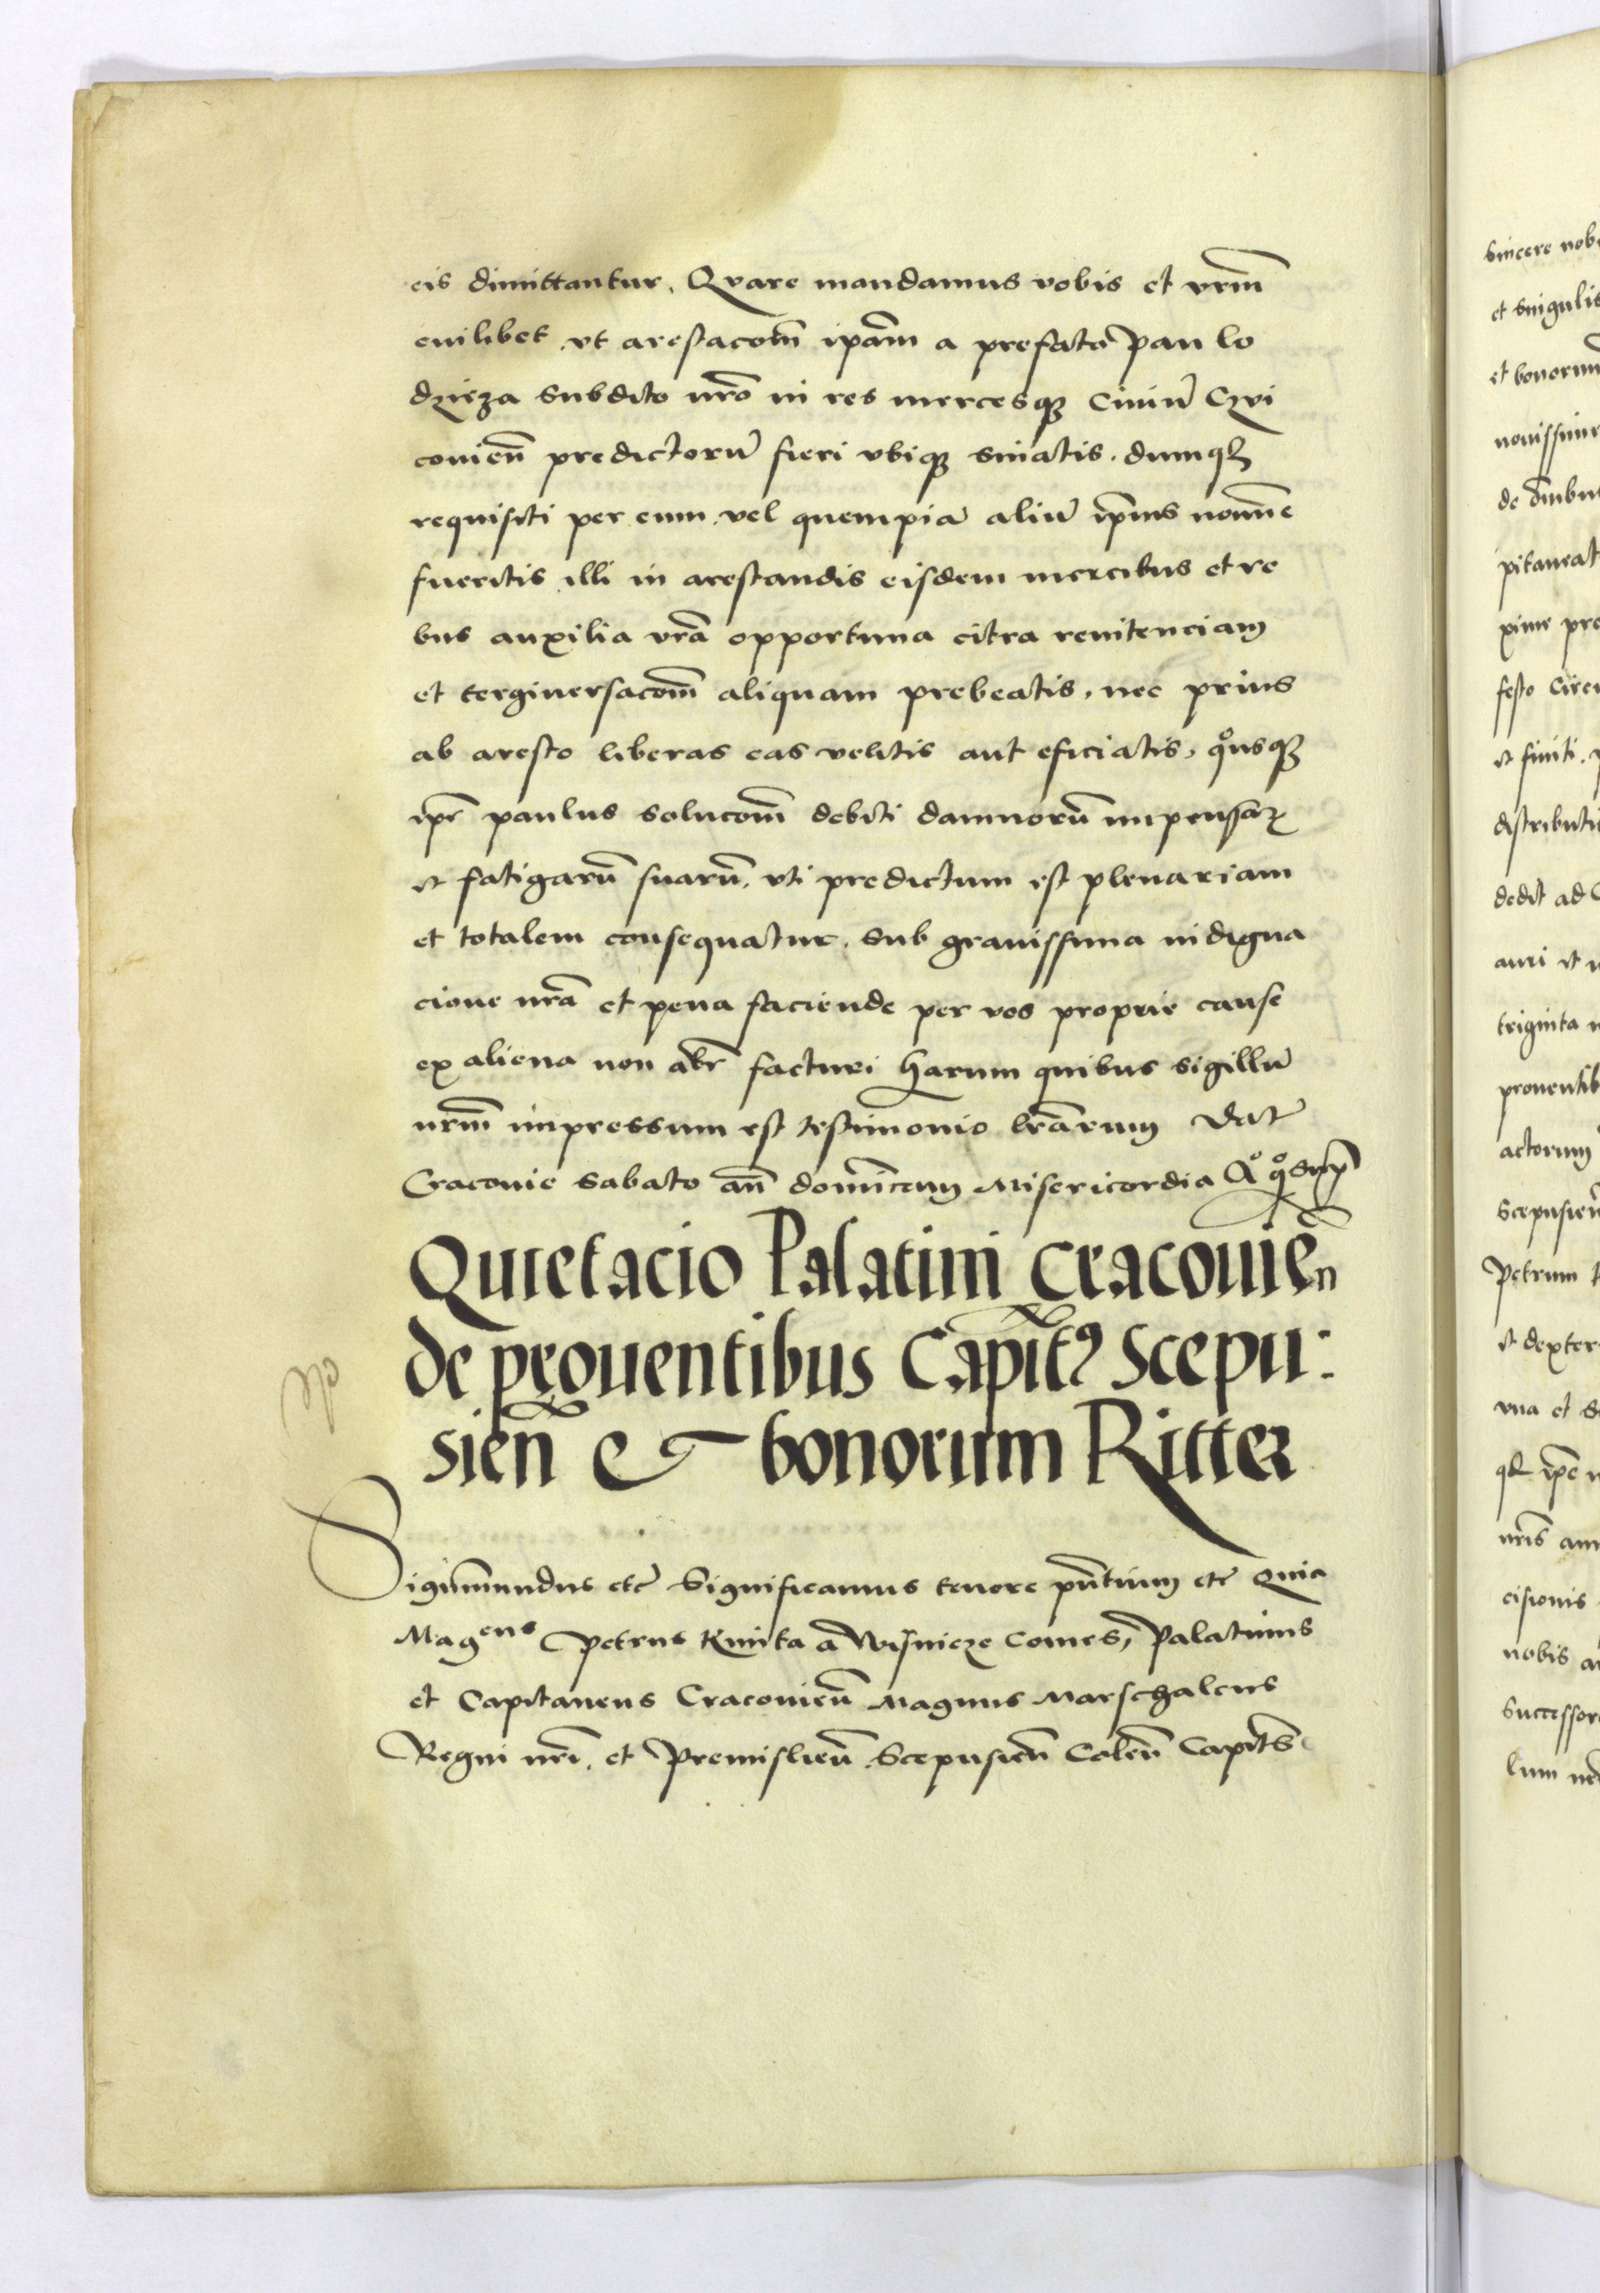 eis dimittantur. Qvare mandamus vobis et vrm̃
cuilibet vt arestacom̃ ipãm a prefato Pau lo
dzieza subdito nrõ in res mercesq3 Ciuiũ Czvi
couieñ predictorũ fieri vbiq3 sinatis. dumq3
requisiti per eum vel quempiã aliũ ip̃ius nomine
fueritis illi in arestandis eisdem mercibus et re
bus auxilia vrã opportuna citra renitenciam
et tergiuersacom̃ aliquam prebeatis, nec prius
ab aresto liberas eas velitis aut eficiatis, qousq3
ip̃e paulus solucom̃ debiti damnorũ impensaꝝ
et fatigarũ suarũ, vti predictum est plenariam
et totalem consequatur. sub grauissima indigna
cione nrã et pena faciende per vos proprie cause
ex aliena non alr̃ facturi harum quibus sigillũ
nrm̃ impressum est testimonio lrãrum Dat̃
Cracouie sabato añ dominicam Misericordia Ao qo sup̃
Quietacio Palatini Cracouień
de prouentibus Capit9 Scepu:
sień et bonorum Ritter
Sigismundus etc̃ Significamus tenore pñtium etc̃ Quia
Magcus Petrus Kmita a Wisnicze Comes, Palatinus
et Capitaneus Cracouieñ Magnus Marschalcus
Regni nrĩ. et Premislieñ Scepusieñ Coleñ Capit̃s
sincere nob
et singulis
et bonorum
nouissime
de õnibus
pitaneat
xime pre
festo Circu
et finiti.
distributi
dedit ad
auri et
triginta
prouentib
actorum
Scepusień
Petrum
et dexter
vna et
qd ip̃e
nrĩs
cisionis
nobis
successor
lum